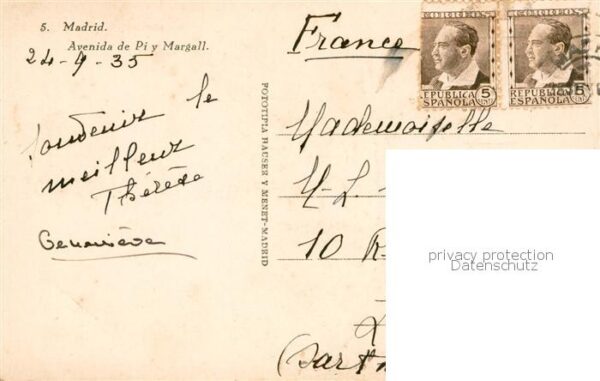 5. Madrid.
Avenida de Pi y Margall.
24-9-35
Souvenir le
meilleur
Thérèse
Geneviève
FOTOTIPIA HAUSER Y MENET-MADRID
France
CORREOS
5
REPUBLICA
ESPAÑOLA
CORREOS
5
REPUBLICA
ESPAÑOLA
Mademoiselle
M-L-
10 R
(Sart
privacy protection
Datenschutz